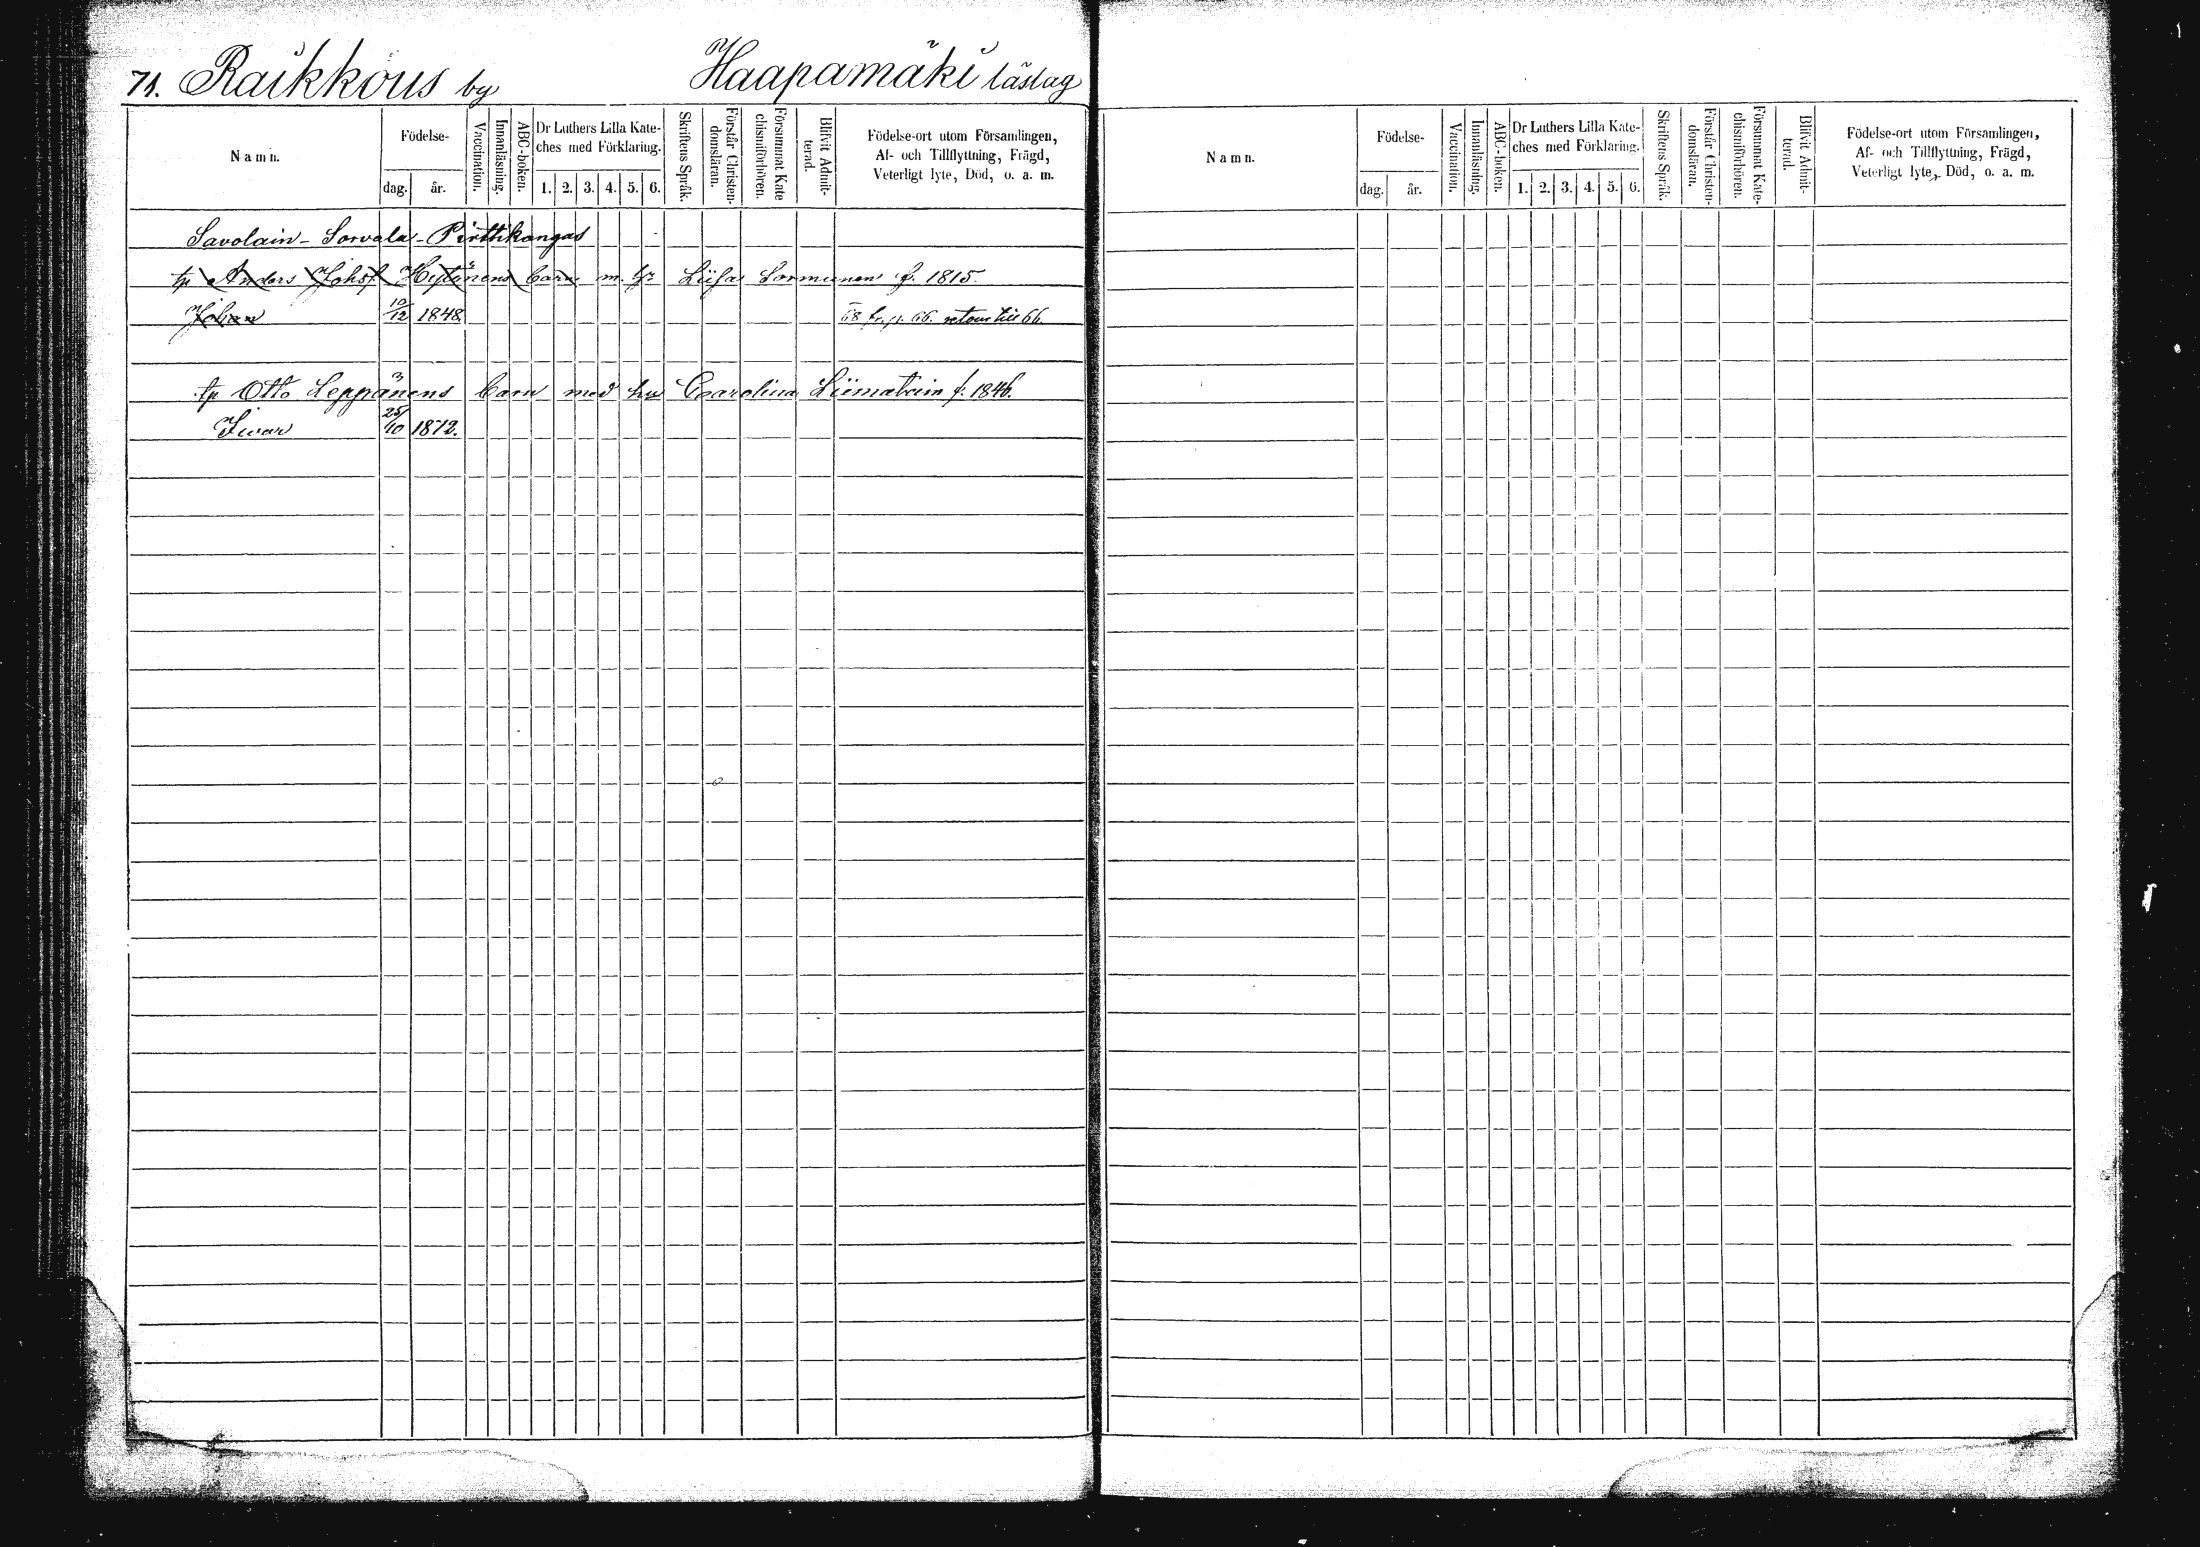 71. Raikkous by Haapamäki läslag
Namn.
Födelse-
dag.
år.
Vaccination.
Innanläsning.
ABC-boken.
Dr Luthers Lilla Kate-
ches med Förklaring.
1. 2. 3. 4. 5. 6.
Skriftens Språk.
Förstår Christen-
domsläran.
Försummat Kate
chismiförhören.
Blifvit Admit-
terad.
Födelse-ort utom Församlingen,
Af- och Tillflyttning, Frägd,
Veterligt lyte, Död, o. a. m.
Savolain - Sorvala - Pirttikangas
tp Anders Johsf. Hytönens barn m. hr Liisa Sormunen f. 1815.
Johan 10/12 1848. 68 fr. p. 66. retour till 66.
tp Otto Leppänens barn med hu Carolina Liimatain f. 1846.
Iwar 25/10 1872.
Namn.
Födelse-
dag.
år.
Vaccination.
Innanläsning.
ABC-boken.
Dr Luthers Lilla Kate-
ches med Förklaring.
1. 2. 3. 4. 5. 6.
Skriftens Språk.
Förstår Christen-
domsläran.
Försummat Kate-
chismiförhören.
Blifvit Admit-
terad.
Födelse-ort utom Församlingen,
Af- och Tillflyttning, Frägd,
Veterligt lyte, Död, o. a. m.